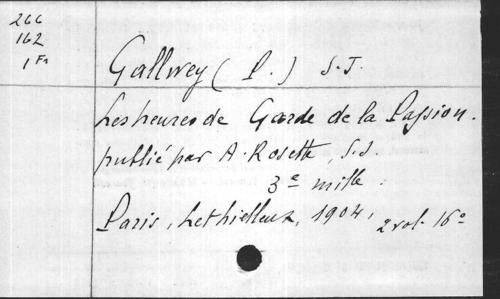 266
162
1 Fa
Gallwey ( P. ) S.J.
Les heures de Garde de la Passion.
publié par A. Rosette, S.J.
3e mille.
Paris, Lethielleux, 1904, 2 vol. 16°